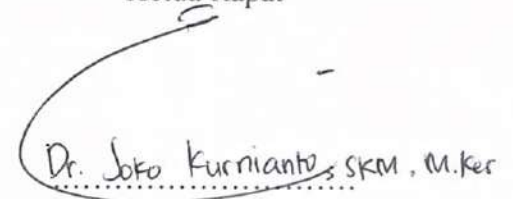 Dr. Joko Kurnianto, SKM, M.Ker